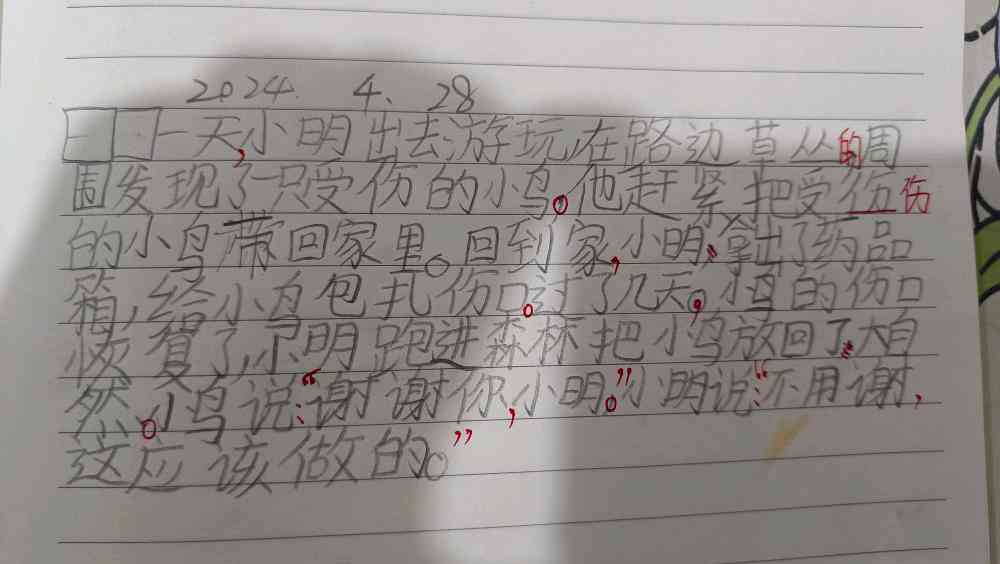 2024. 4、28
一天,小明出去游玩,在路边草丛的周
围发现了一只受伤的小鸟。他赶紧把受伤伤
的小鸟带回家里。回到家,小明,拿出了药品
箱,给小鸟包扎伤口。过了几天,小鸟的伤口
恢复了,小明跑进森林把小鸟放回了大自
然。小鸟说:“谢谢你,小明。”小明说:“不用谢,
这应该做的。”